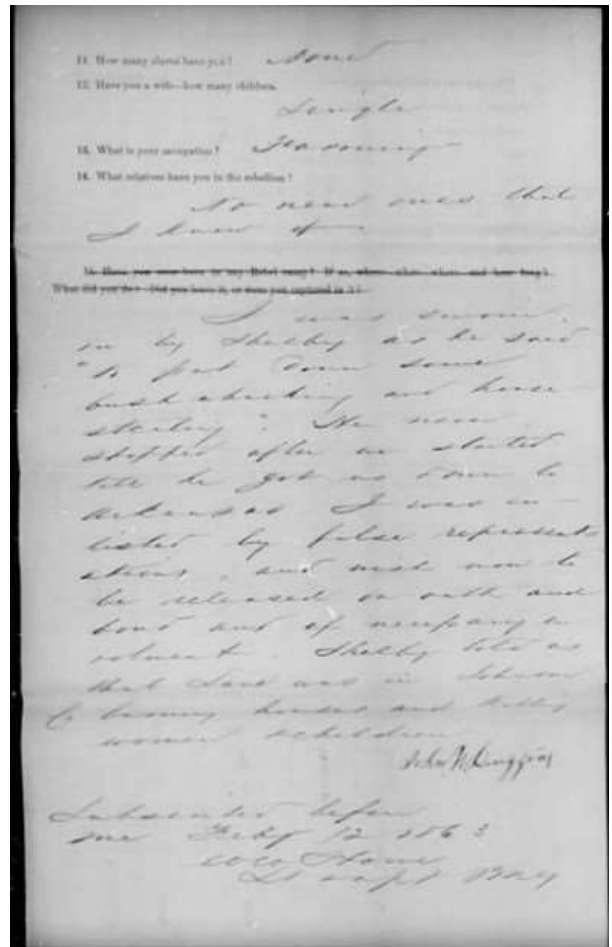 11. How many slaves have you? None
12. Have you a wife—how many children.
Single
13. What is your occupation? Farming
14. What relatives have you in the rebellion?
No near ones that
I know of
15. Have you ever been in any Rebel army? If so, whose—when—where—and how long?
What did you do? Did you leave it, or were you captured in it?
I was sworn
in by Shelby as he said
"to put down some
bushwhacking and horse
stealing". He never
stopped after we started
till he got us down to
Arkansas I was en-
listed by false represent-
ations, and wish now to
be released on oath and
bond and if necessary en
rolment. Shelby told us
that Lane was in Johnson
Co burning houses and killing
women & children
John Huggins
Subscribed before
me Feby 12 1863